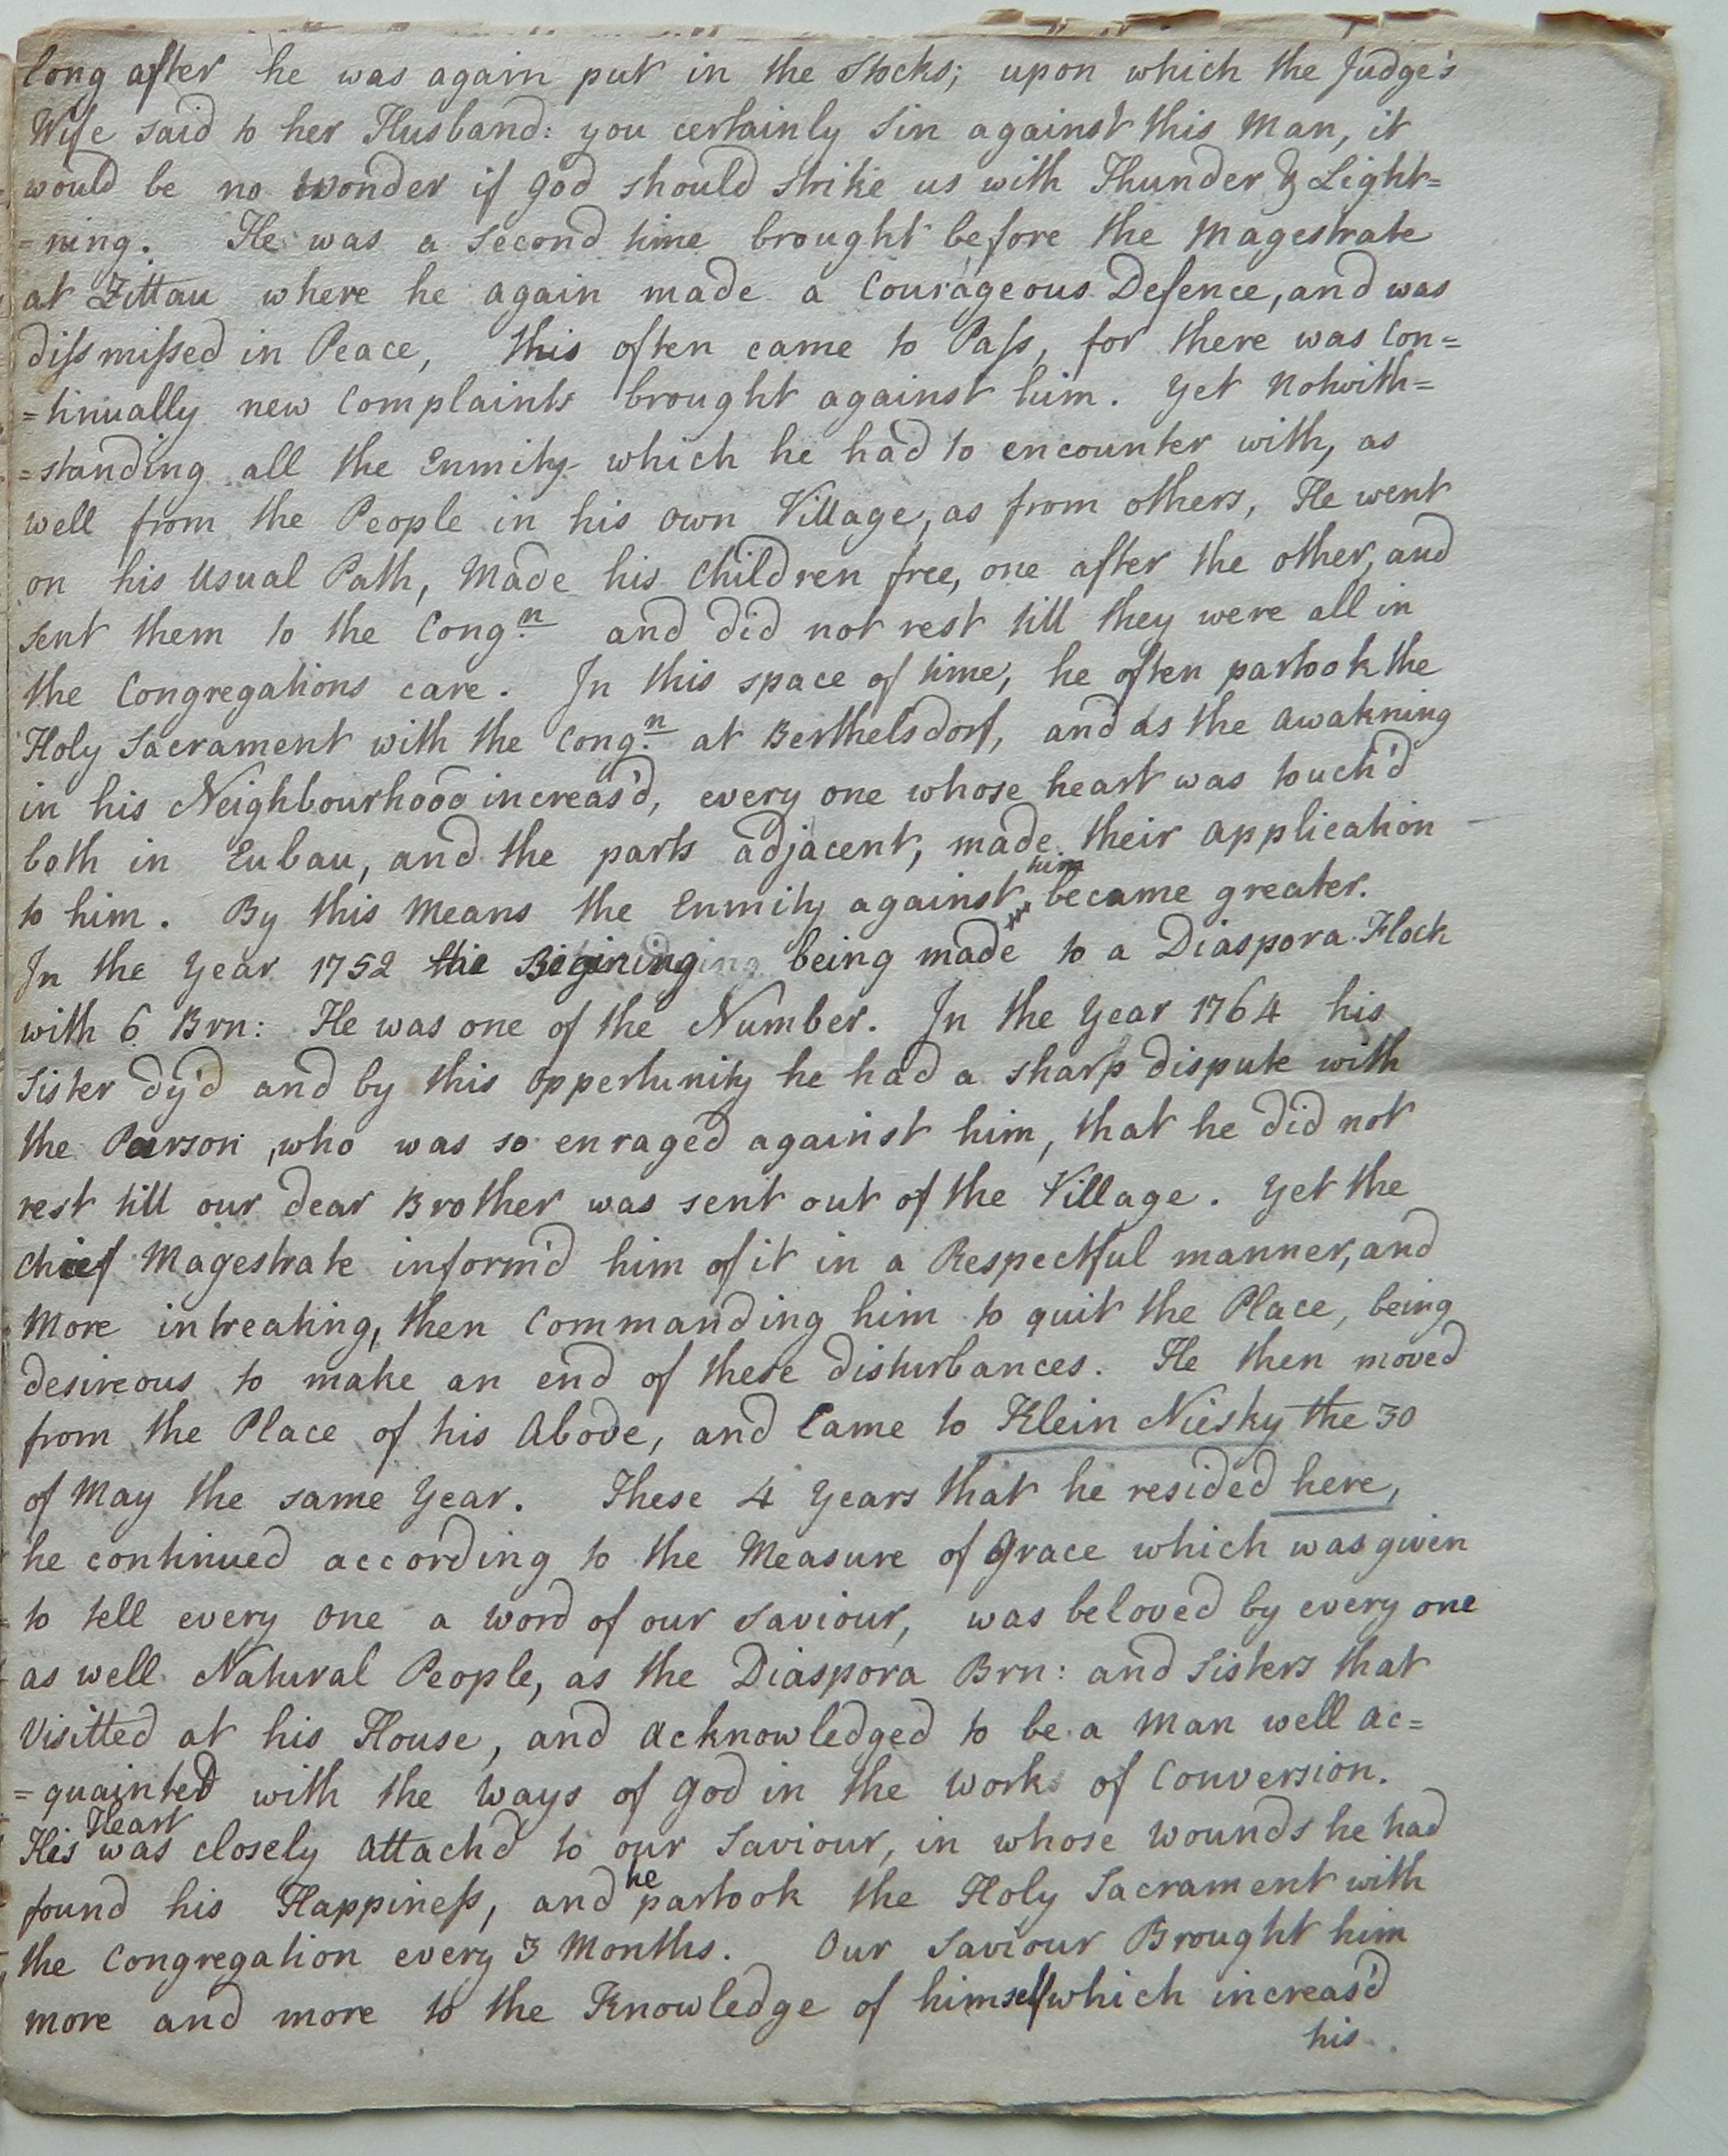 long after he was again put in the Stocks; upon which the Judge's
Wife said to her Husband: you certainly Sin against this Man, it
would be no wonder if god should strike us with Thunder & Light=
=ning. He was a second time brought before the Magestrate
at Zittau where he again made a Courageous Defence, and was
dissmissed in Peace, this often came to Pass, for there was Con=
=tinually new Complaints brought against him. Yet Notwith=
=standing all the Enmity which he had to encounter with, as
well from the People in his own Village, as from others, He went
on his Usual Path, Made his Children free, one after the other, and
sent them to the Cong.n and did not rest till they were all in
the Congregations care. In this space of time, he often partook the
Holy Sacrament with the Cong.n at Berthelsdorf, and as the awakning
in his Neighbourhood increas'd, every one whose heart was touch'd
both in Eubau, and the parts adjacent, made their application
to him. By this Means the Enmity against him became greater.
In the Year 1752 the Begining being made to a Diaspora Flock
with 6 Brn: He was one of the Number. In the Year 1764 his
Sister dy'd and by this oppertunity he had a sharp dispute with
the Parson, who was so enraged against him, that he did not
rest till our dear Brother was sent out of the Village. Yet the
chief Magestrate inform'd him of it in a Respectful manner, and
More intreating, then Commanding him to quit the Place, being
desireous to make an end of these disturbances. He then moved
from the Place of his Abode, and Came to Klein Niesky the 30
of May the same Year. These 4 Years that he resided here,
he continued according to the Measure of Grace which was given
to tell every one a word of our Saviour, was beloved by every one
as well Natural People, as the Diaspora Brn: and Sisters that
Visitted at his House, and acknowledged to be a Man well ac=
=quainted with the Ways of God in the Work of Conversion.
His Heart was closely attach'd to our Saviour, in whose Wounds he had
found his Happiness, and he partook the Holy Sacrament with
the Congregation every 3 Months. Our Saviour Brought him
more and more to the Knowledge of himself which increas'd
his